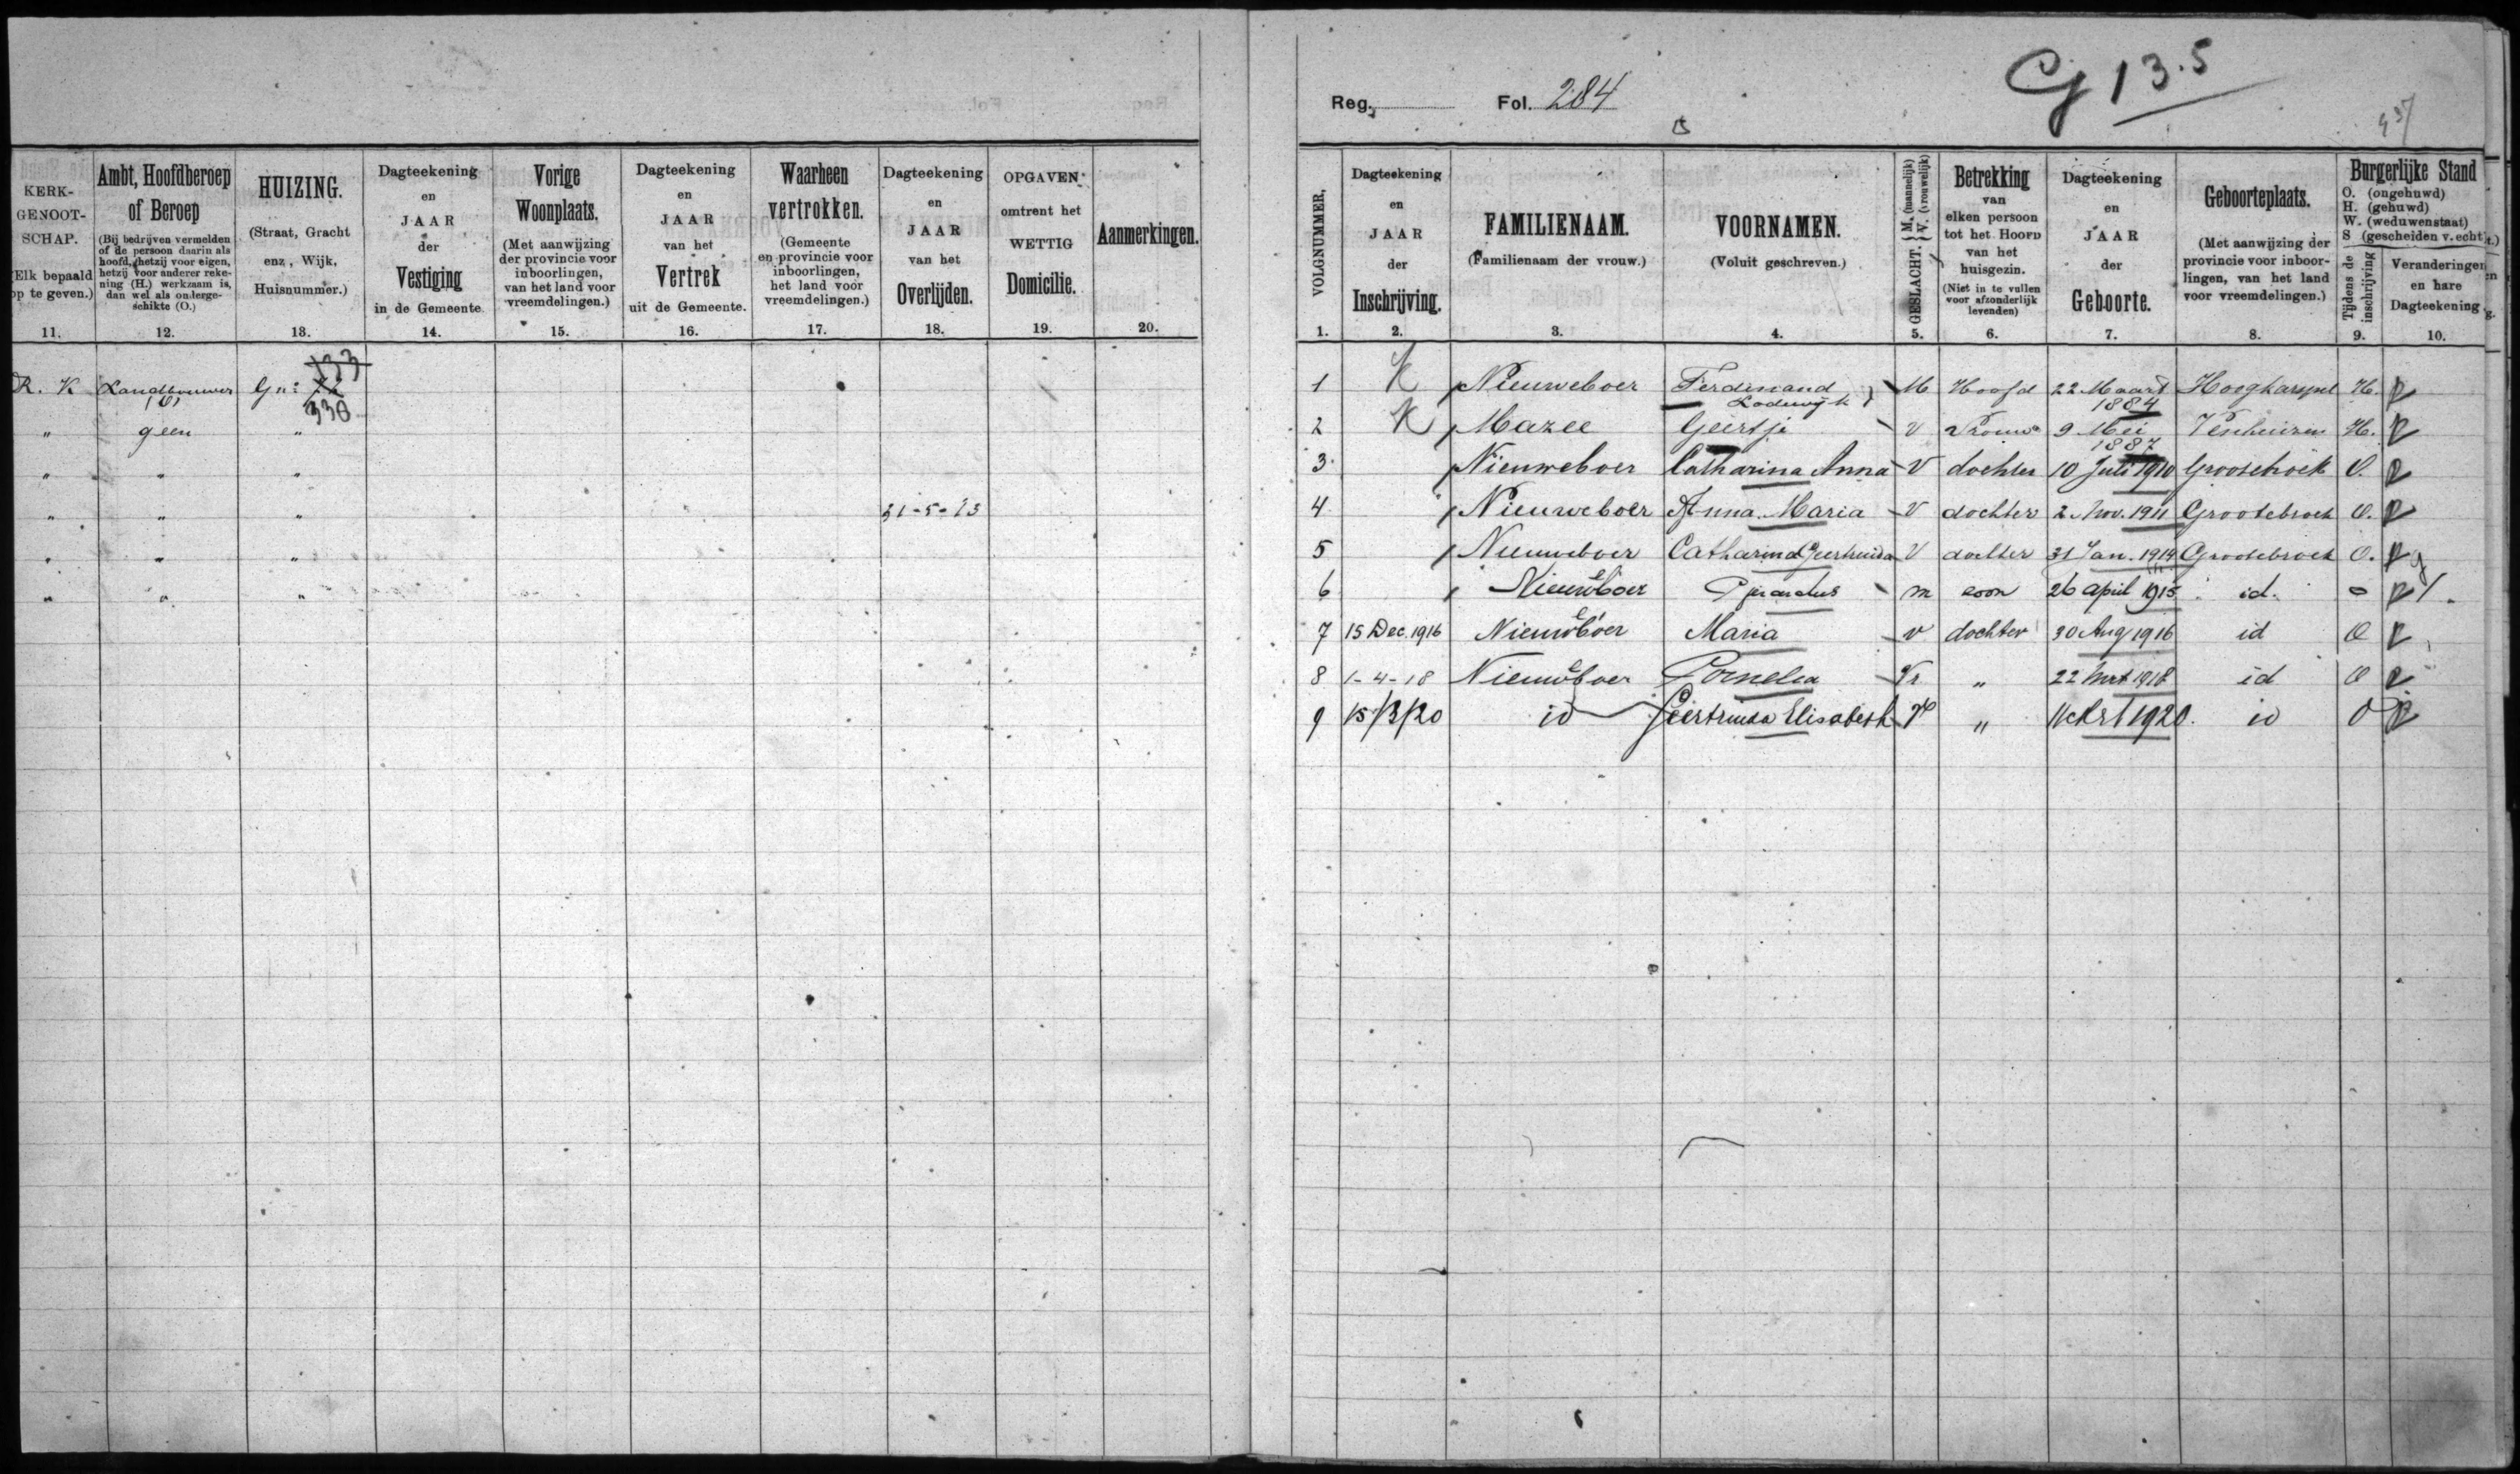 KERK-
GENOOT-
SCHAP.
(Elk bepaald
op te geven.)
11.
Ambt, Hoofdberoep
of Beroep
(Bij bedrijven vermelden
of de persoon daarin als
hoofd, hetzij voor eigen,
hetzij voor anderer reke-
ning (H.) werkzaam is,
dan wel als onderge-
schikte (O.)
12.
HUIZING.
(Straat, Gracht
enz, Wijk,
Huisnummer.)
13.
Dagteekening
en
JAAR
der
Vestiging
in de Gemeente.
14.
Vorige
Woonplaats.
(Met aanwijzing
der provincie voor
inboorlingen,
van het land voor
vreemdelingen.)
15.
Dagteekening
en
JAAR
van het
Vertrek
uit de Gemeente.
16.
Waarheen
vertrokken.
(Gemeente
en provincie voor
inboorlingen,
het land voor
vreemdelingen.)
17.
Dagteekening
en
JAAR
van het
Overlijden.
18.
OPGAVEN
omtrent het
WETTIG
Domicilie.
19.
Aanmerkingen.
20.
133
R. K Landbouwer Gn:
338
" geen "
" " "
" " " 31-5-13
" " "
" " "
G 13.5
Reg. Fol. 284
VOLGNUMMER.
1.
Dagteekening
en
JAAR
der
Inschrijving.
2.
FAMILIENAAM.
(Familienaam der vrouw.)
3.
VOORNAMEN.
(Voluit geschreven.)
4.
GESLACHT. { M. (mannelijk)
V. (vrouwelijk)
5.
Betrekking
van
elken persoon
tot het HOOFD
van het
huisgezin.
(Niet in te vullen
voor afzonderlijk
levenden)
6.
Dagteekening
en
JAAR
der
Geboorte.
7.
Geboorteplaats.
(Met aanwijzing der
provincie voor inboor-
lingen, van het land
voor vreemdelingen.)
8.
Burgerlijke Stand
O. (ongehuwd)
H. (gehuwd)
W. (weduwenstaat)
S (gescheiden v. echt)
Tijdens de
inschrijving
9.
Veranderingen
en hare
Dagteekening
10.
1 K Nieuweboer Ferdinand Lodewijk M Hoofd 22 Maart 1884 Hoogkarspel H.
2 K Mazee Geertje V Vrouw 9 Mei 1887 Venhuizen H.
3 Nieuweboer Catharina Anna V dochter 10 Juli 1910 Grootebroek O.
4 Nieuweboer Anna Maria V dochter 2 Nov. 1911 Grootebroek O.
5 Nieuweboer Catharina Geertruida V dochter 31 Jan. 1914 Grootebroek O.
6 Nieuweboer m zoon 26 april 1915 id. o
7 15 Dec. 1916 Nieuweboer Maria v dochter 30 Aug 1916 id O
8 1-4-18 Nieuweboer Cornelia Vr " 22 Mrt 1918 id O
9 15/3/20 id Geertruida Elisabeth V " 11 Mrt 1920. id O